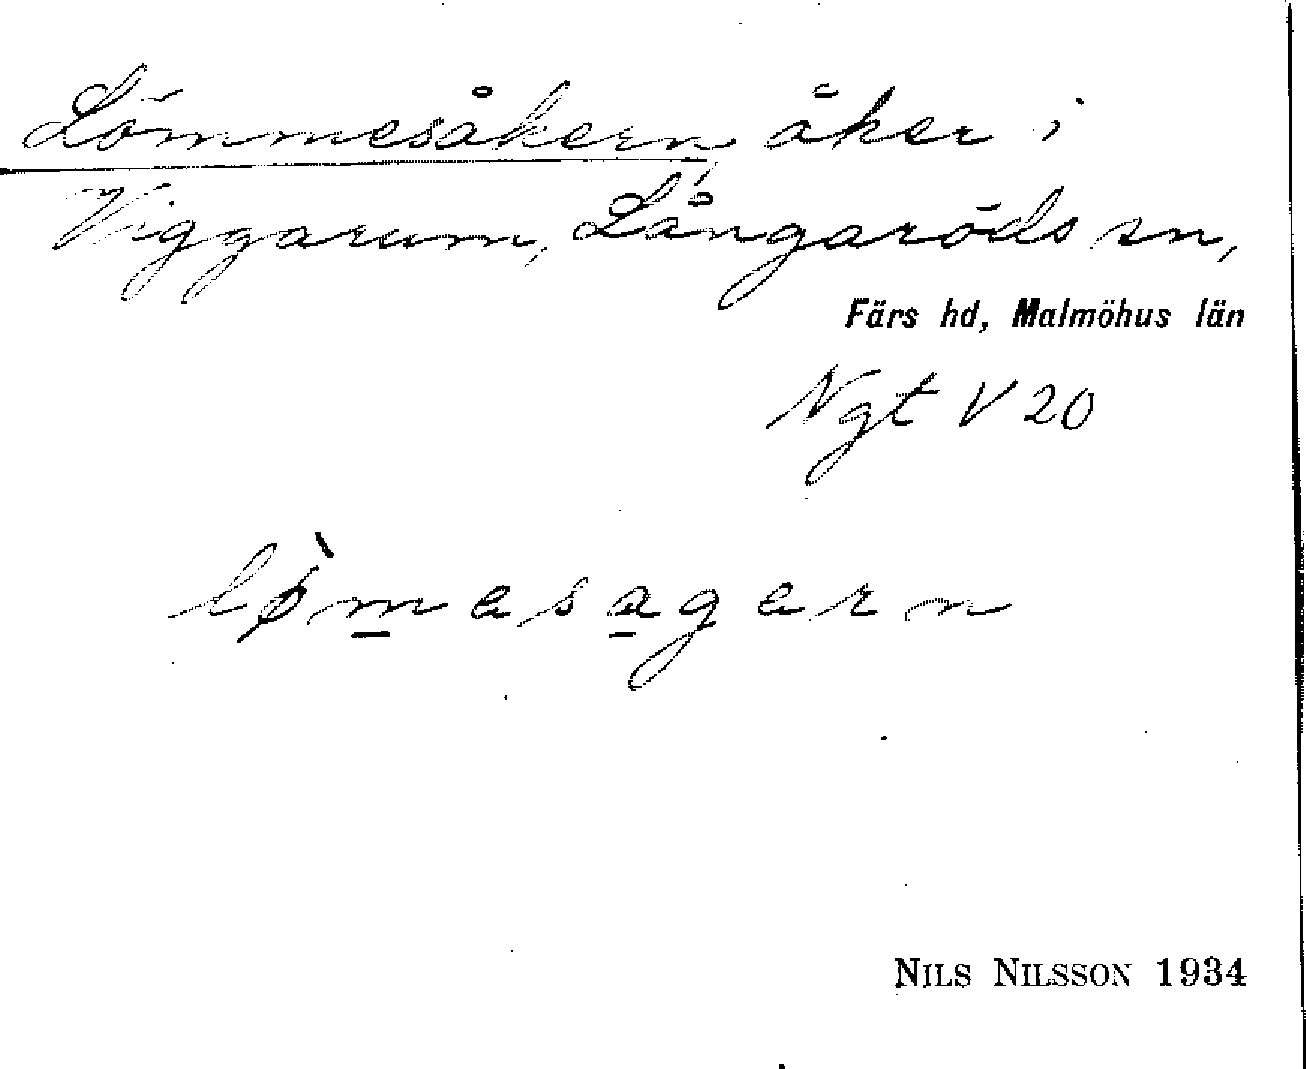 Lömmesåkern, åker i
Viggarum, Långaröds sn,
Färs hd, Malmöhus län
Ngt V 20
lø̀m̲esa̲gern
NILS NILSSON 1934